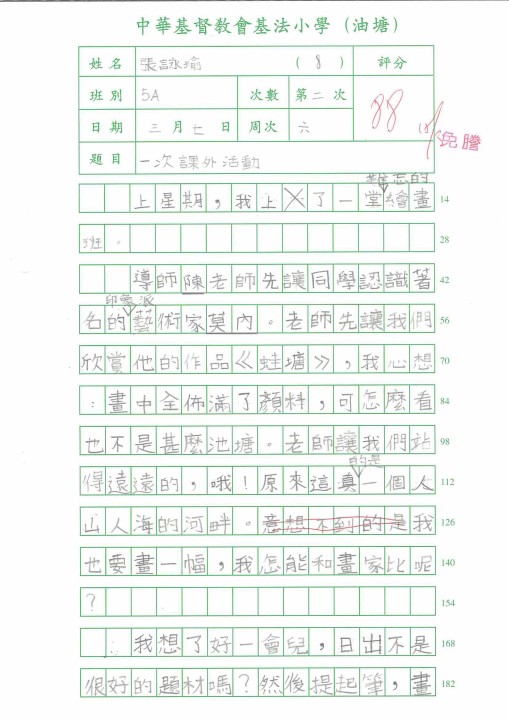 中華基督教會基法小學（油塘）
姓名 張詠瑜 (8) 評分
班別 5A 次數 第二次 88
日期 三月七日 周次 六 免謄
題目 一次課外活動
難忘的
上星期，我上了一堂繪畫 14
班。 28
導師陳老師先讓同學認識著 42
印象派
名的藝術家莫內。老師先讓我們 56
欣賞他的作品《蛙塘》，我心想 70
：畫中全佈滿了顏料，可怎麼看 84
也不是甚麼池塘。老師讓我們站 98
的是
得遠遠的，哦！原來這真一個人 112
山人海的河畔。意想不到的是我 126
也要畫一幅，我怎能和畫家比呢 140
？ 154
我想了好一會兒，日出不是 168
很好的題材嗎？然後提起筆，畫 182